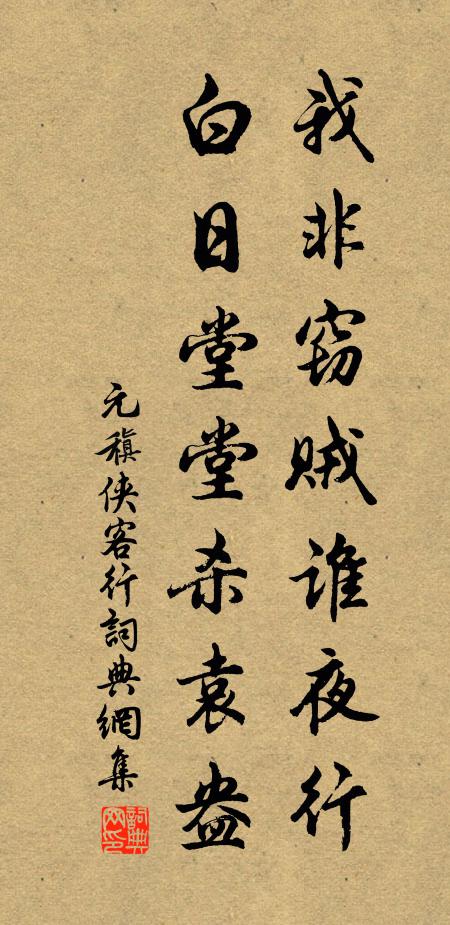 我非窃贼谁夜行
白日堂堂杀袁盎
元稹侠客行詞典網集
詞典
网印